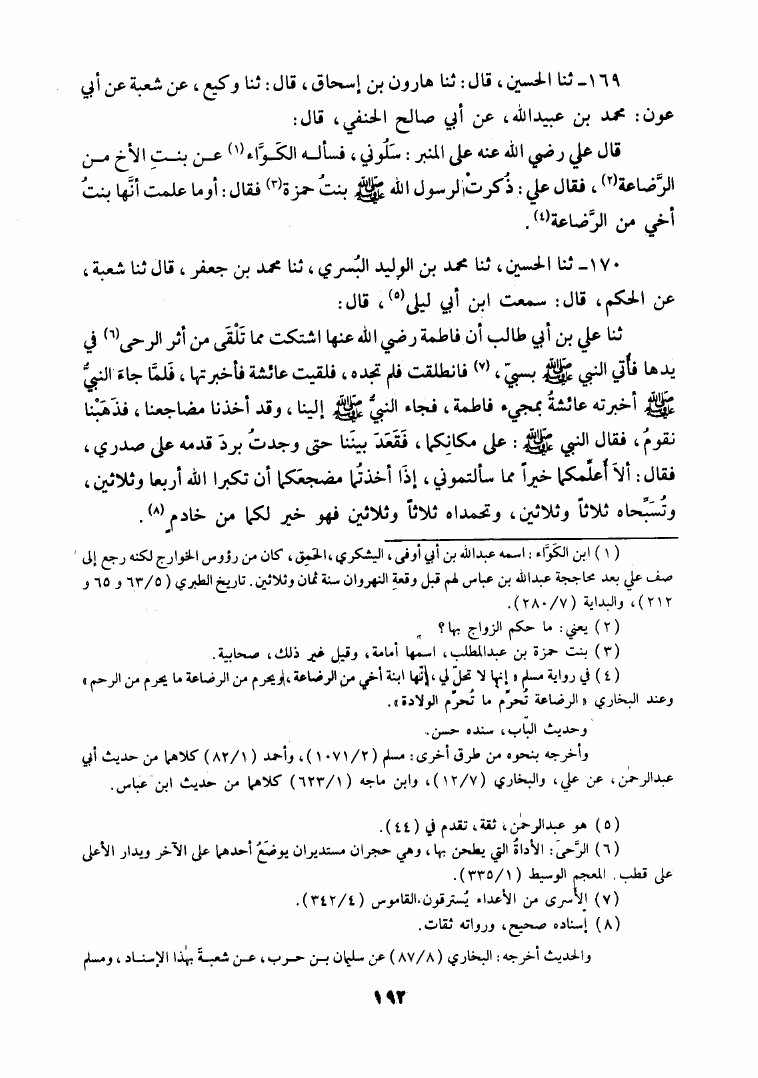 ١٦٩ـ ثنا الحسين، قال: ثنا هارون بن إسحاق، قال: ثنا وكيع، عن شعبة عن أبي
عون: محمد بن عبيدالله، عن أبي صالح الحنفي، قال:
قال علي رضي الله عنه على المنبر: سَلُوني، فسأله الكَوَّاء(١) عن بنتِ الأخ من
الرَّضاعة(٢)، فقال علي: ذُكرتْ لرسول الله ﷺ بنتُ حمزة(٣) فقال: أوما علمت أنَّها بنتُ
أخي من الرَّضاعة(٤).
١٧٠ـ ثنا الحسين، ثنا محمد بن الوليد البُسري، ثنا محمد بن جعفر، قال ثنا شعبة،
عن الحكم، قال: سمعت ابن أبي ليلى(٥)، قال:
ثنا علي بن أبي طالب أن فاطمة رضي الله عنها اشتكت مما تَلْقَى من أثر الرحى(٦) في
يدها فأُتي النبي ﷺ بسبيّ،(٧) فانطلقت فلم تجده، فلقيت عائشة فأخبرتها، فلمَّا جاءَ النبيُّ
ﷺ أخبرته عائشةُ بمجيء فاطمة، فجاء النبيُّ ﷺ إلينا، وقد أخذنا مضاجعنا، فذَهَبْنا
نقومُ، فقال النبي ﷺ: على مكانِكما، فَقَعَدَ بينَنا حتى وجدتُ بردَ قدمه على صدري،
فقال: ألاَ أُعلِّمكما خيراً مما سألتموني، إذَا أخذتُما مضجعَكما أن تكبرا الله أربعا وثلاثين،
وتُسَبِّحاه ثلاثاً وثلاثين، وتحمداه ثلاثاً وثلاثين فهو خير لكما من خادمٍ(٨).
(١) ابن الكَوَّاء: اسمه عبدالله بن أبي أوفى، اليشكري، الحَمِق، كان من رؤوس الخوارج لكنه رجع إلى
صف علي بعد محاججة عبدالله بن عباس لهم قبل وقعة النهروان سنة ثمان وثلاثين. تاريخ الطبري (٦٣/٥ و ٦٥ و
٢١٢)، والبداية (٢٨٠/٧).
(٢) يعني: ما حكم الزواج بها؟
(٣) بنت حمزة بن عبدالمطلب، اسمها أمامة، وقيل غير ذلك، صحابية.
(٤) في رواية مسلم «إنها لا تحلّ لي، إنَّها ابنة أخي من الرضاعة، ويحرم من الرضاعة ما يحرم من الرحم»
وعند البخاري «الرضاعة تُحرِّم ما تُحرِّم الولادة».
وحديث الباب، سنده حسن.
وأخرجه بنحوه من طرق أخرى: مسلم (١٠٧١/٢)، وأحمد (٨٢/١) كلاهما من حديث أبي
عبدالرحمٰن، عن علي، والبخاري (١٢/٧)، وابن ماجه (٦٢٣/١) كلاهما من حديث ابن عباس.
(٥) هو عبدالرحمٰن، ثقة، تقدم في (٤٤).
(٦) الرَّحىَ: الأداةُ التي يطحن بها، وهي حجران مستديران يوضَعُ أحدهما على الآخر ويدار الأعلى
على قطب. المعجم الوسيط (٣٣٥/١).
(٧) الأسرى من الأعداء يُسترقون. القاموس (٣٤٢/٤).
(٨) إسناده صحيح، ورواته ثقات.
والحديث أخرجه: البخاري (٨٧/٨) عن سليمان بن حرب، عن شعبةَ بهٰذا الإسناد، ومسلم
١٩٢